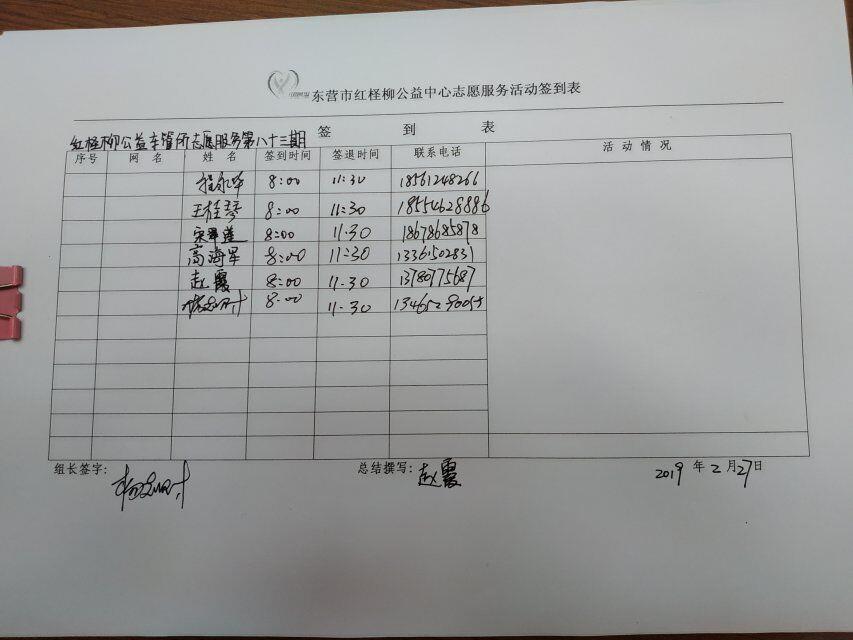 东营市红柽柳公益中心志愿服务活动签到表
签 到 表
红柽柳公益车管所志愿服务第八十三期
序号 网 名 姓 名 签到时间 签退时间 联系电话 活 动 情 况
8:00 11:30 18561248266
王桂琴 8:00 11:30 18554628886
宋翠莲 8:00 11.30 18678685878
高海军 8:00 11:30 13361502831
赵霞 8:00 11.30 13780775687
8:00 11.30 13465290055
组长签字: 总结撰写: 赵霞 2019 年 2 月 27 日